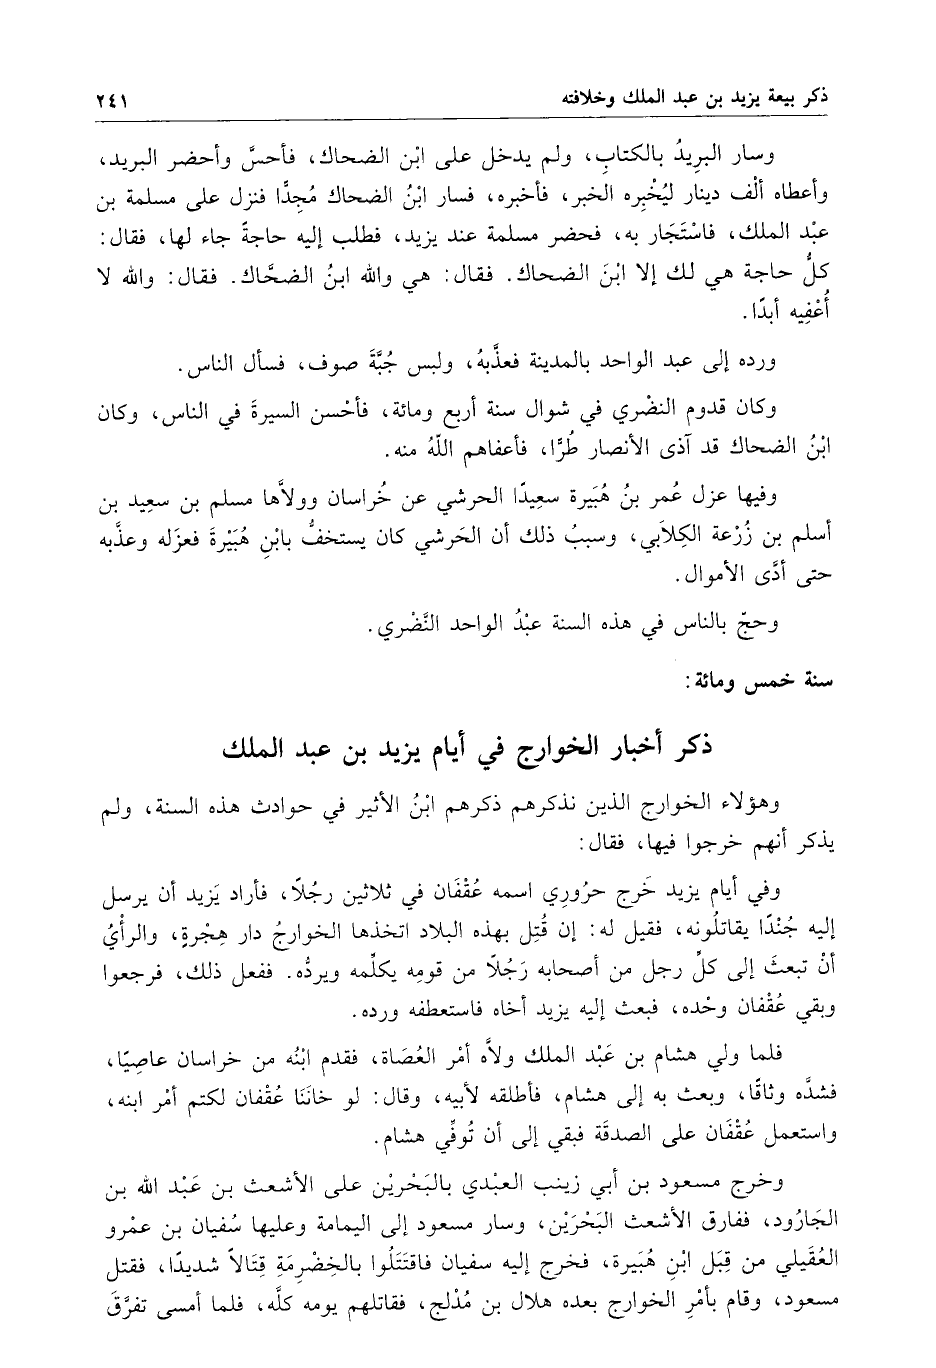 ذكر بيعة يزيد بن عبد الملك وخلافته ٢٤١
وسار البرِيدُ بالكتابِ، ولم يدخل على ابْن الضحاك، فأحسَّ وأحضر البريد،
وأعطاه ألْف دينار ليُخْبِره الخبر، فأخبره، فسار ابْنُ الضحاك مُجِدًّا فنزل على مسلمة بن
عبْد الملك، فاسْتَجَار به، فحضر مسلمة عند يزيد، فطلب إليه حاجةً جاء لها، فقال:
كلُّ حاجة هي لك إلا ابْنَ الضحاك. فقال: هي والله ابنُ الضحَّاك. فقال: والله لا
أُعْفِيه أبدًا.
ورده إلى عبد الواحد بالمدينة فعذَّبهُ، ولبس جُبَّةَ صوف، فسأل الناس.
وكان قدوم النضْري في شوال سنة أربع ومائة، فأحْسن السيرةَ في الناس، وكان
ابْنُ الضحاك قد آذى الأنصار طُرًّا، فأعفاهم اللّهُ منه.
وفيها عزل عُمر بنُ هُبَيرة سعِيدًا الحرشي عن خُراسان وولاَّها مسلم بن سعِيد بن
أسلم بن زُرْعة الكِلاَبي، وسببُ ذلك أن الحَرشي كان يستخفُّ بابْنِ هُبَيْرةَ فعزَله وعذَّبه
حتى أدَّى الأموال.
وحجّ بالناس في هذه السنة عبْدُ الواحد النَّضْري.
سنة خمس ومائة:
ذكر أخبار الخوارج في أيام يزيد بن عبد الملك
وهؤلاء الخوارج الذين نذكرهم ذكرهم ابْنُ الأثير في حوادث هذه السنة، ولم
يذكر أنهم خرجوا فيها، فقال:
وفي أيام يزيد خَرج حرُورِي اسمه عُقْفَان في ثلاثين رجُلًا، فأراد يَزيد أن يرسل
إليه جُنْدًا يقاتلُونه، فقيل له: إن قُتِل بهذه البلاد اتخذها الخوارجُ دار هِجْرةٍ، والرأْيُ
أنْ تبعثَ إلى كلِّ رجل من أصحابه رَجُلًا من قومِه يكلِّمه ويردُّه. ففعل ذلك، فرجعوا
وبقي عُقْفان وحْده، فبعث إليه يزيد أخاه فاستعطفه ورده.
فلما ولي هشام بن عَبْد الملك ولاَّه أمْر العُصَاة، فقدم ابْنُه من خراسان عاصِيًا،
فشدَّه وثاقًا، وبعث به إلى هشام، فأطلقه لأبيه، وقال: لو خانَنا عُقْفان لكتم أمْر ابنه،
واستعمل عُقْفَان على الصدقَة فبقي إلى أن تُوفِّي هشام.
وخرج مسعود بن أبي زينب العبْدي بالبَحْريْن على الأشعث بن عَبْد الله بن
الجَارُود، ففارق الأشعث البَحْرَيْن، وسار مسعود إلى اليمامة وعليها سُفيان بن عمْرو
العُقَيلي من قِبَل ابْنِ هُبَيرة، فخرج إليه سفيان فاقتَتَلُوا بالخِضْرِمَةِ قِتَالاً شديدًا، فقتل
مسعود، وقام بأمْرِ الخوارج بعده هلال بن مُدْلج، فقاتلهم يومه كلَّه، فلما أمسى تفرَّقَ